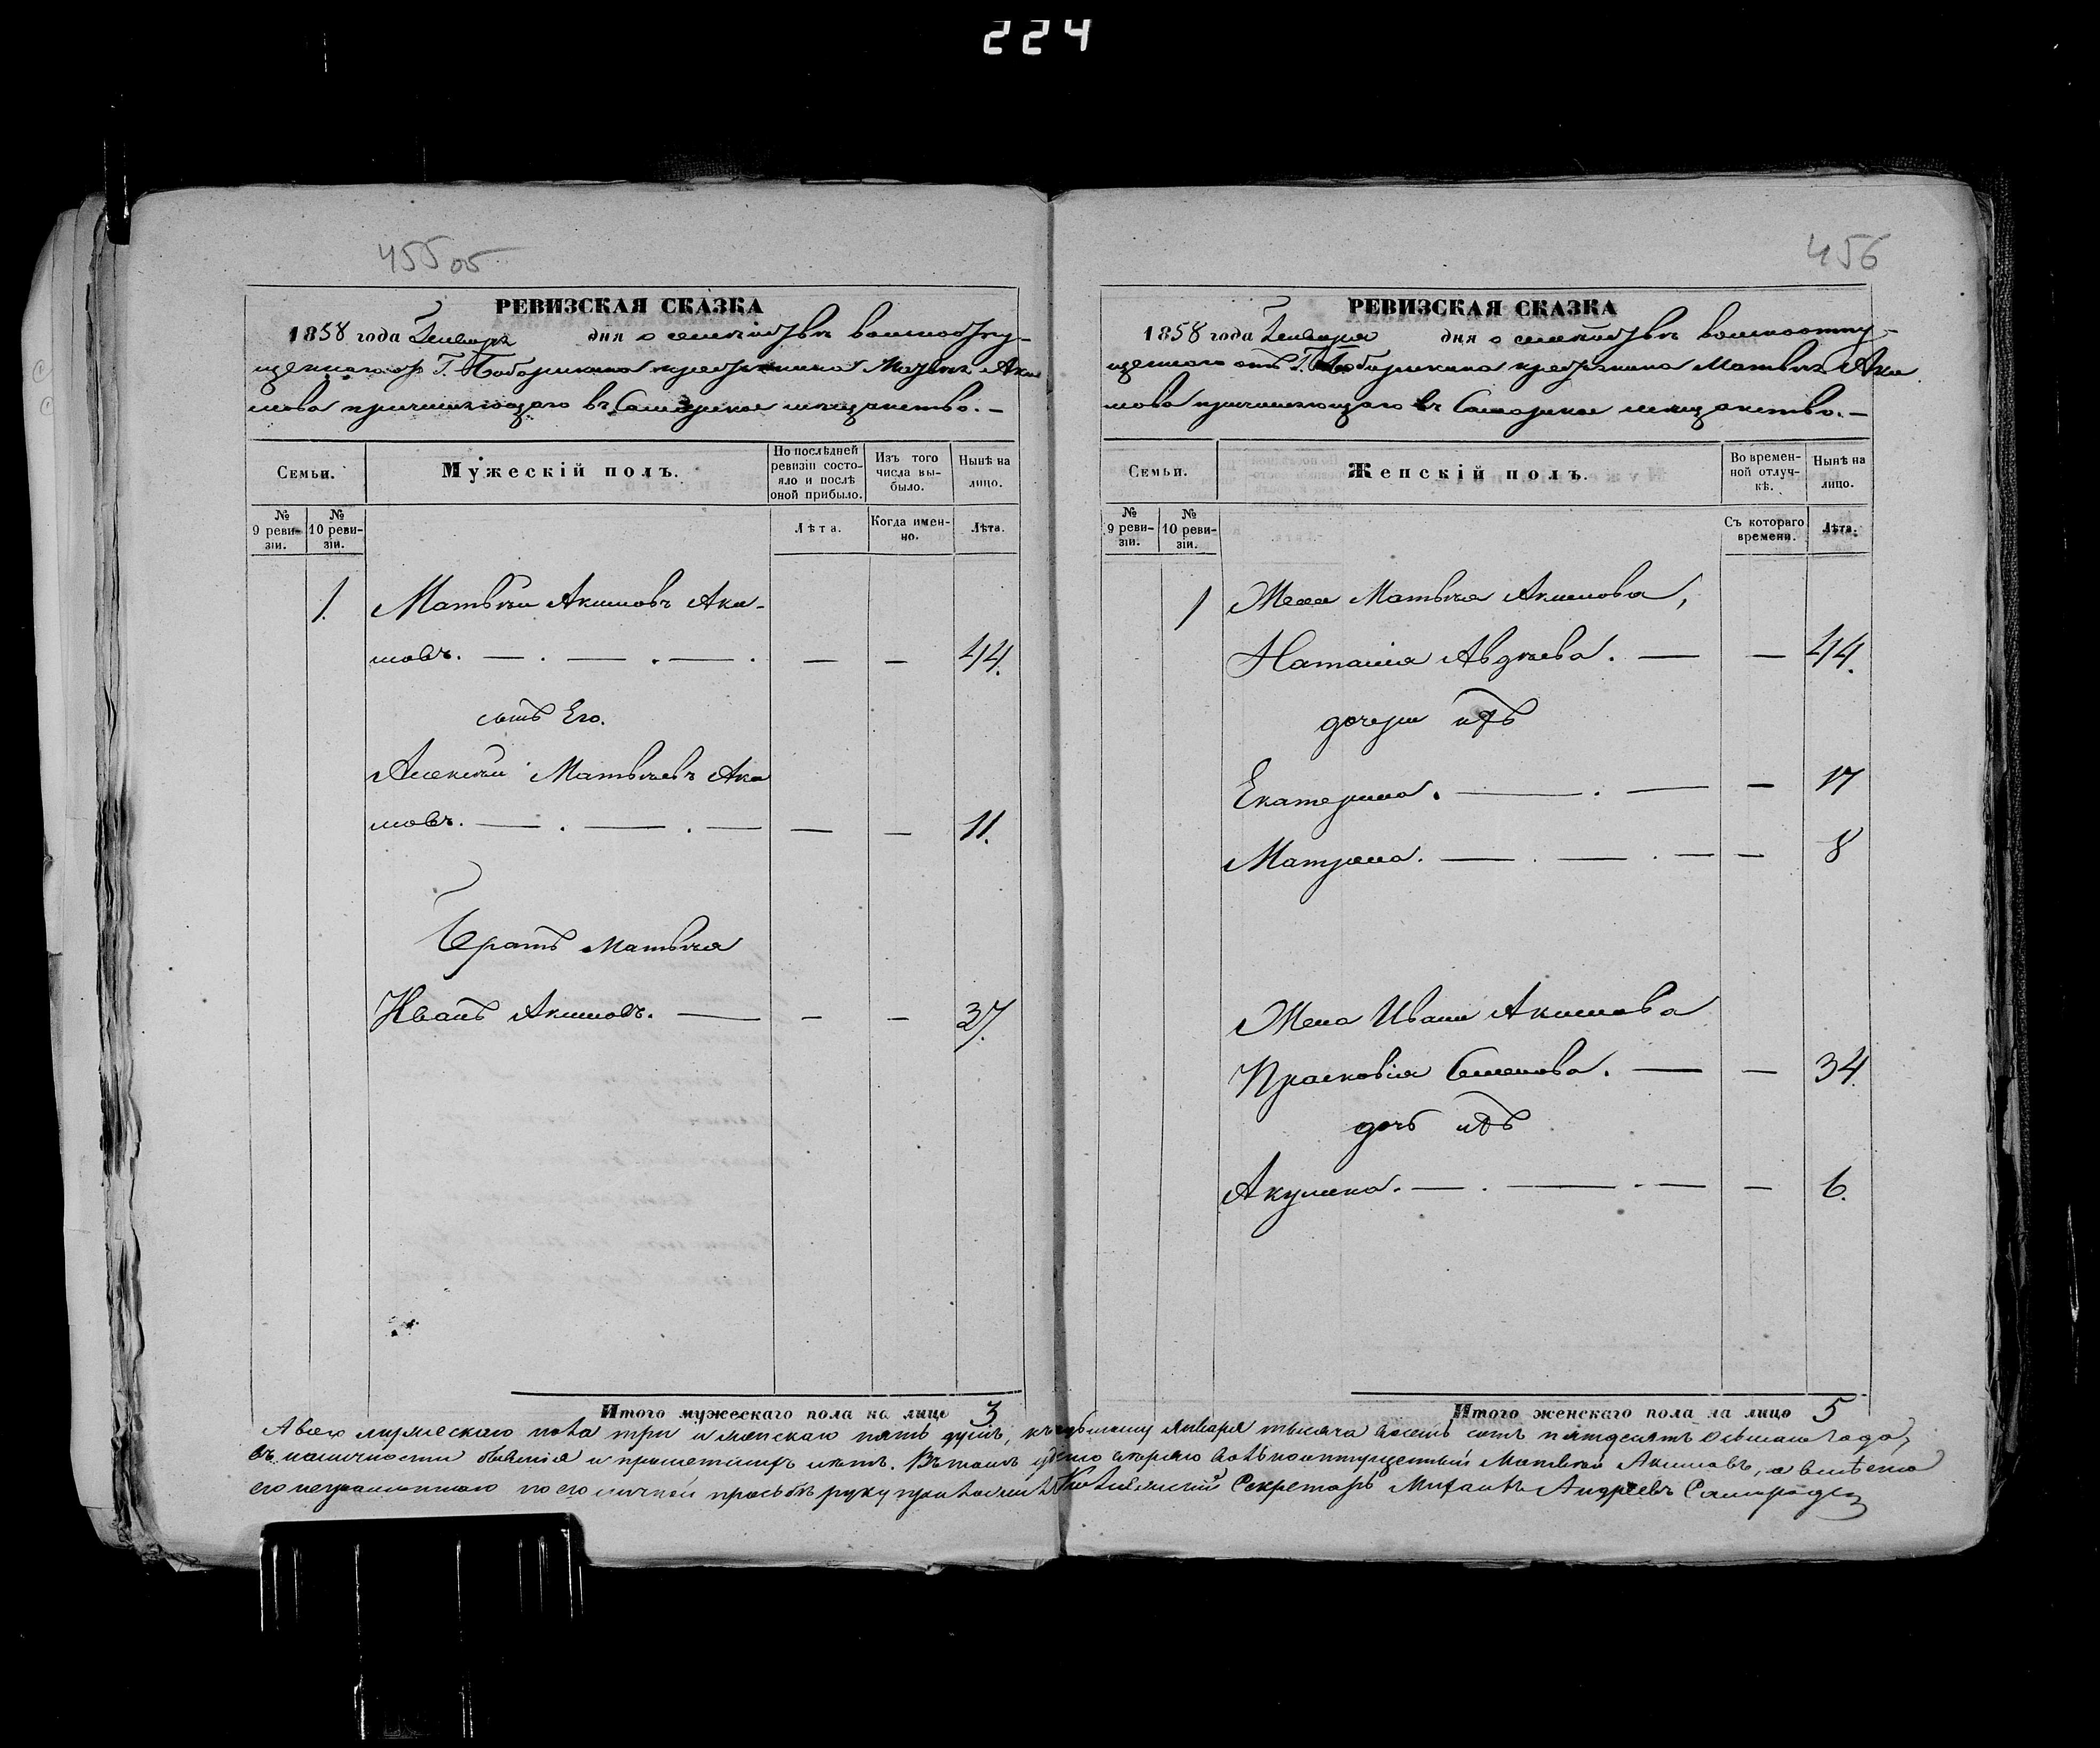 224
455 об
РЕВИЗСКАЯ СКАЗКА
1858 года Генваря дня о семействѣ вольноотпу-
щеннаго отъ Г. Поборыкина крестьянина Матвѣя Аки
мова причисляющаго въ Самарское мещанство. —
Семьи.
Мужескій полъ.
По послѣдней
ревизіи состо-
яло и послѣ
оной прибыло.
Изъ того
числа вы-
было.
Нынѣ на
лицо.
№
9 реви-
зіи.
№
10 реви-
зіи.
Лѣта.
Когда имен-
но.
Лѣта.
1. Матвѣй Акимовъ Аки-
мовъ. — . — . — . — — 44.
сынъ Его.
Алексѣй Матвѣевъ Аки
мовъ. — . — . — — — 11.
Братъ Матвѣя
Иванъ Акимовъ. — — — 37.
Итого мужескаго пола на лицо 3
456
РЕВИЗСКАЯ СКАЗКА
1858 года Генваря дня о семействѣ вольноотпу-
щеннаго отъ Г. Поборыкина крестьянина Матвѣя Аки
мова причисляющаго въ Самарское мещанство. —
Семьи.
Женскій полъ.
Во времен-
ной отлуч-
кѣ.
Нынѣ на
лицо.
№
9 реви-
зіи.
№
10 реви-
зіи.
Съ котораго
времени.
Лѣта.
1 Жена Матвѣя Акимова,
Наталия Авдѣева. — — 44.
дочери ихъ
Екатерина. — . — — 17
Матрена. — . — . — — 8
Жена Ивана Акимова
Прасковія Семенова. — — 34.
дочь ихъ
Акулина. — . — . — — 6.
Итого женскаго пола на лицо 5
А всехъ мужескаго пола три и женскаго пять душъ, къ первому января тысяча восемь сотъ пятдесятъ осьмаго года,
въ наличности объявленія и прописныхъ нетъ. Въ томъ вольноотпущенный Матвей Акимовъ, а вместо
его неграмотнаго по его личной просьбѣ руку приложилъ Секретарь Михаилъ Андреевъ